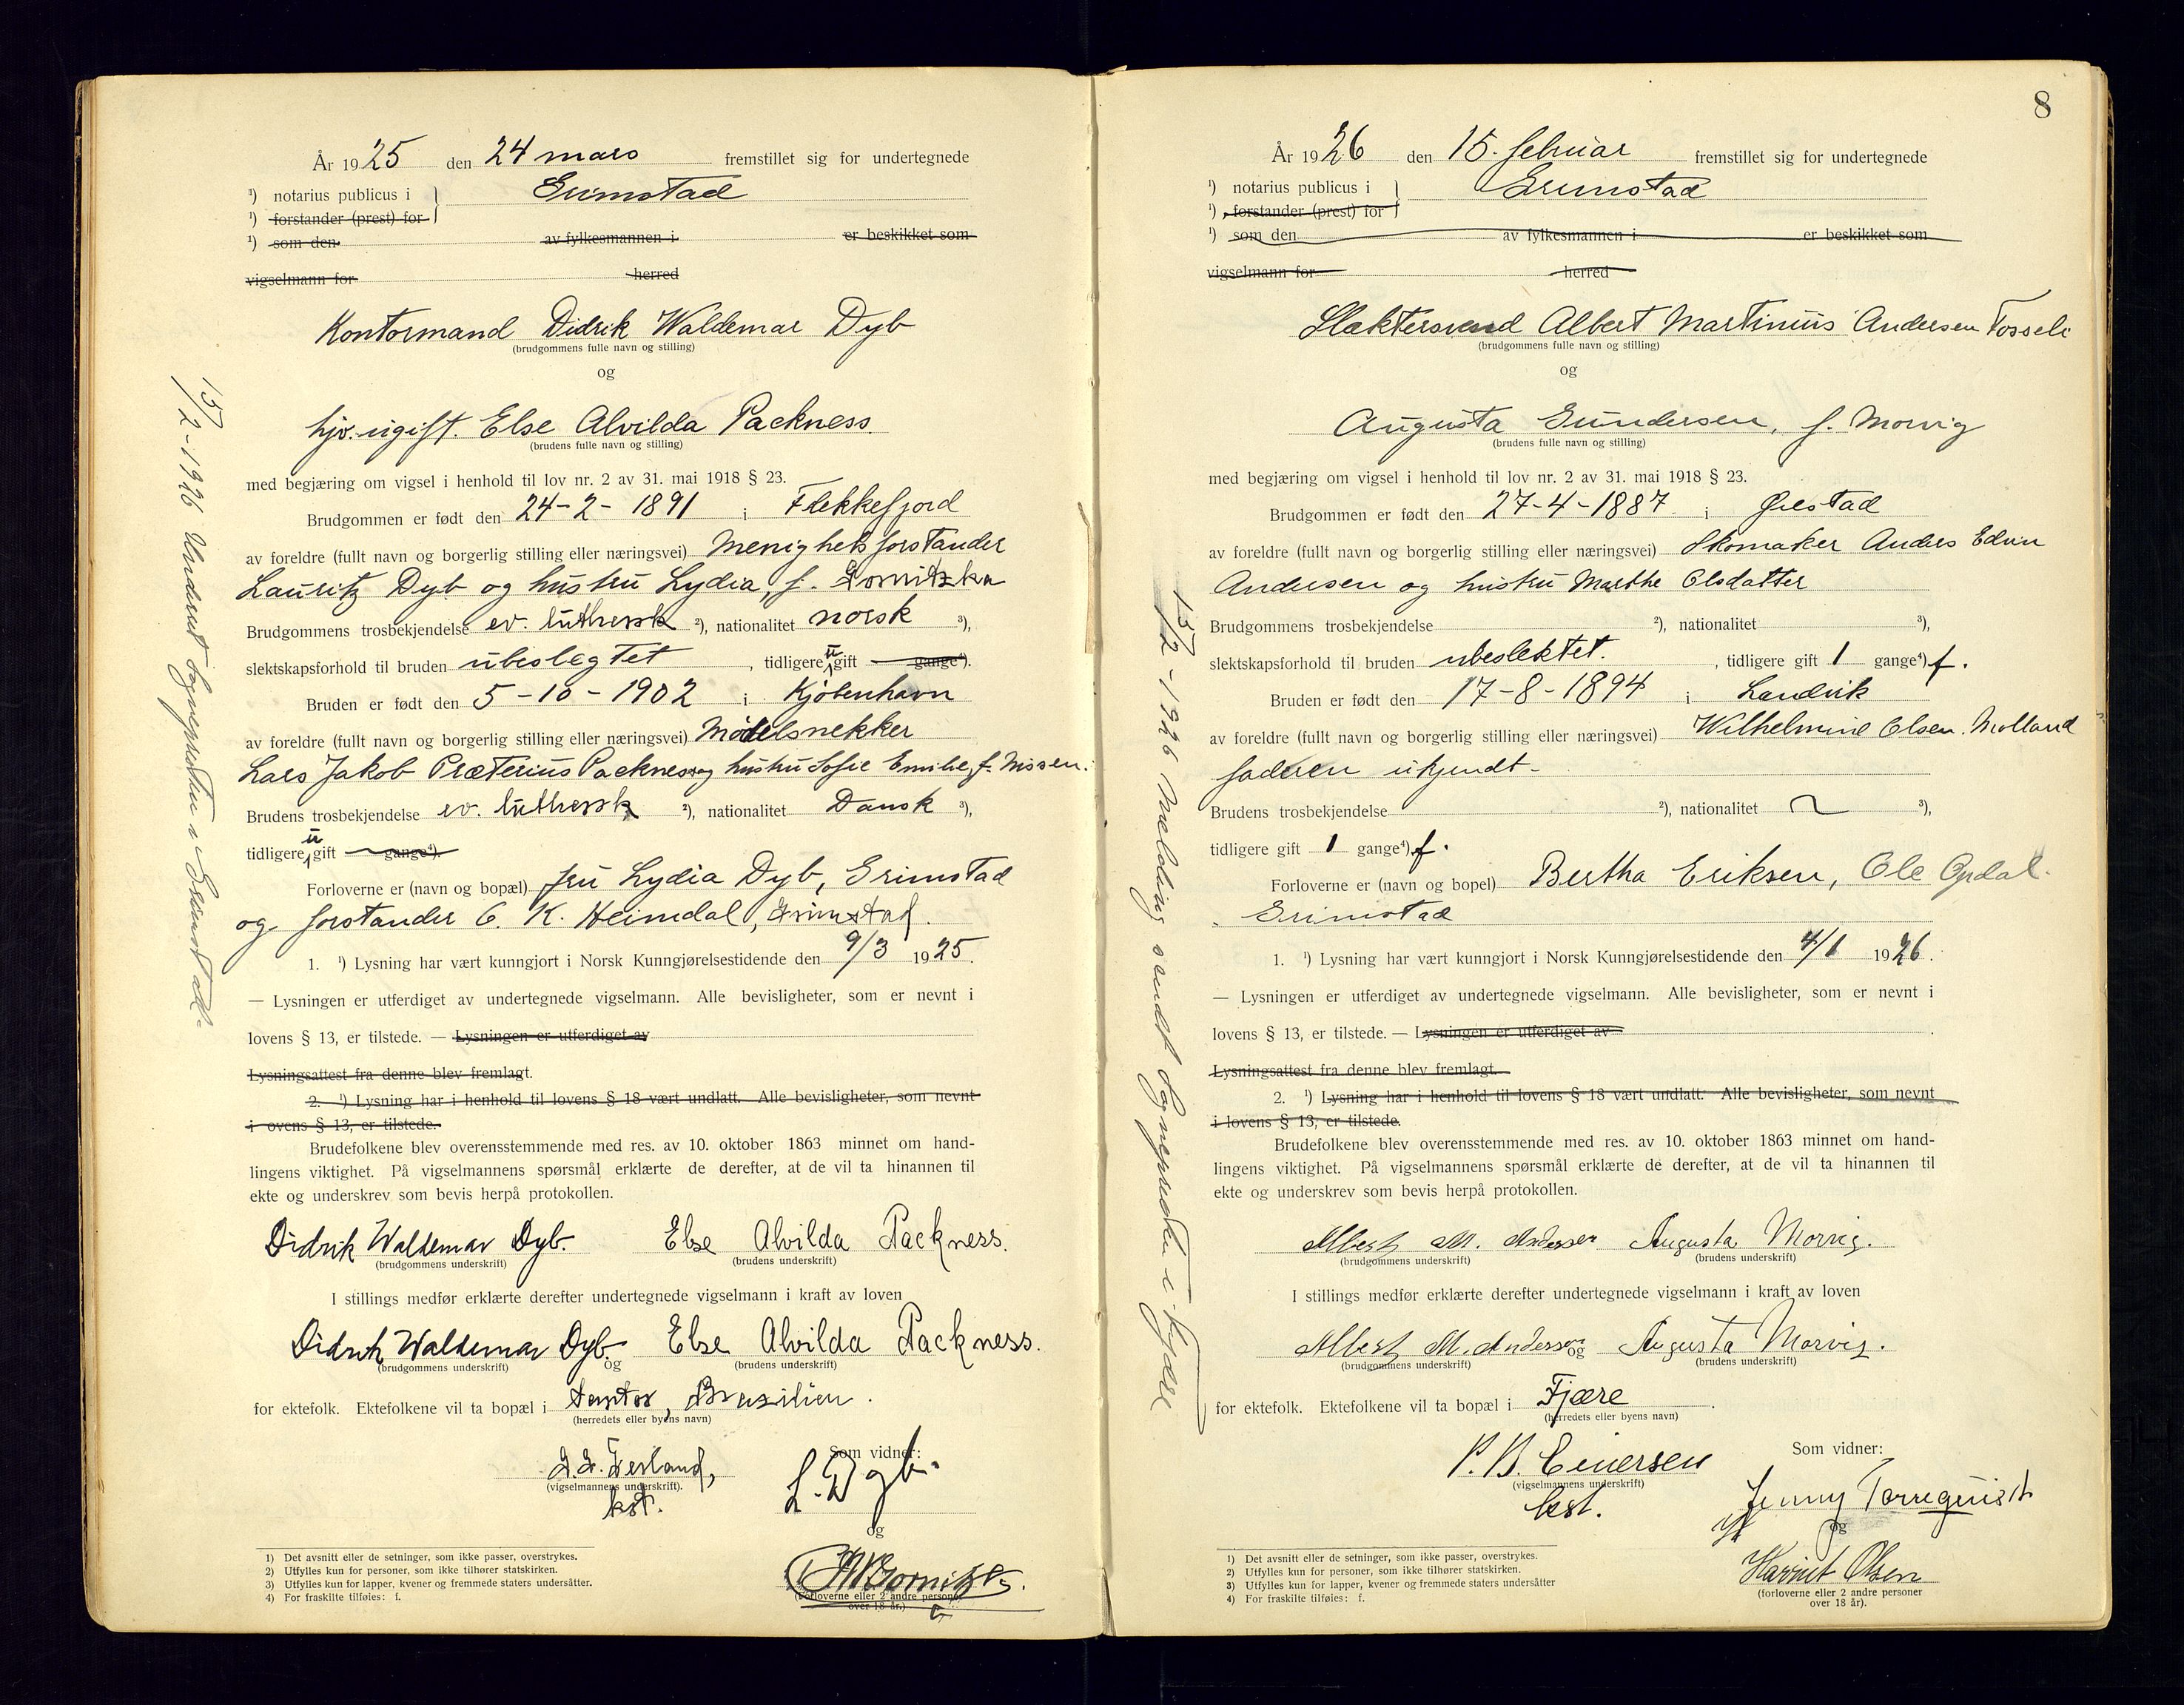 År 1925 den 24 mars fremstillet sig for undertegnede
¹) notarius publicus i } Grimstad
¹) forstander (prest) for
¹) som den av fylkesmannen i er beskikket som
vigselmann for herred
Kontormand Didrik Waldemar Dyb
(brudgommens fulle navn og stilling)
og
hjv. ugift. Else Alvilda Packness.
(brudens fulle navn og stilling)
med begjæring om vigsel i henhold til lov nr. 2 av 31. mai 1918 § 23.
Brudgommen er født den 24-2-1891 i Flekkefjord
av foreldre (fullt navn og borgerlig stilling eller næringsvei) Menighetsforstander
Lauritz Dyb og hustru Lydia, f. Gornitzka
Brudgommens trosbekjendelse ev. luthersk ²), nationalitet norsk ³),
slektskapsforhold til bruden ubeslegtet, tidligere u gift gange⁴).
Bruden er født den 5-10-1902 i Kjöbenhavn
av foreldre (fullt navn og borgerlig stilling eller næringsvei) Modelsnekker
Lars Jakob Præterius Packness og hustru Sofie Emilie, f. Nissen.
Brudens trosbekjendelse ev. luthersk ²), nationalitet Dansk ³),
tidligere u gift gange⁴).
Forloverne er (navn og bopæl) fru Lydia Dyb, Grimstad
og forstander C. K. Heimdal, Grimstad.
1. ¹) Lysning har vært kunngjort i Norsk Kunngjørelsestidende den 9/3 1925.
— Lysningen er utferdiget av undertegnede vigselmann. Alle bevisligheter, som er nevnt i
lovens § 13, er tilstede. — Lysningen er utferdiget av
Lysningsattest fra denne blev fremlagt.
2. ¹) Lysning har i henhold til lovens § 18 vært undlatt. Alle bevisligheter, som nevnt
i ovens § 13, er tilstede.
Brudefolkene blev overensstemmende med res. av 10. oktober 1863 minnet om hand-
lingens viktighet. På vigselmannens spørsmål erklærte de derefter, at de vil ta hinannen til
ekte og underskrev som bevis herpå protokollen.
Didrik Waldemar Dyb. Else Alvilda Packness.
(brudgommens underskrift) (brudens underskrift)
I stillings medfør erklærte derefter undertegnede vigselmann i kraft av loven
Didrik Waldemar Dyb og Else Alvilda Packness.
(brudgommens underskrift) (brudens underskrift)
for ektefolk. Ektefolkene vil ta bopæl i Santos, Brasilien.
(herredets eller byens navn)
Som vidner:
L. Dyb.
(vigselmannens underskrift).
kst.
og
(forloverne eller 2 andre personer
over 18 år.)
1) Det avsnitt eller de setninger, som ikke passer, overstrykes.
2) Utfylles kun for personer, som ikke tilhører statskirken.
3) Utfylles kun for lapper, kvener og fremmede staters undersåtter.
4) For fraskilte tilføies: f.
15/2-1926 Underret sognepresten i Grimstad.
8
År 1926 den 15. februar fremstillet sig for undertegnede
¹) notarius publicus i } Grimstad
¹) forstander (prest) for
¹) som den av fylkesmannen i er beskikket som
vigselmann for herred
Slaktersvend Albert Martinius Andersen Fosseli
(brudgommens fulle navn og stilling)
og
Augusta Gundersen, f. Morvig
(brudens fulle navn og stilling)
med begjæring om vigsel i henhold til lov nr. 2 av 31. mai 1918 § 23.
Brudgommen er født den 27-4-1887 i Øiestad
av foreldre (fullt navn og borgerlig stilling eller næringsvei) Skomaker Anders Edvin
Andersen og hustru Marthe Olsdatter
Brudgommens trosbekjendelse ²), nationalitet ³),
slektskapsforhold til bruden ubeslektet., tidligere gift 1 gange⁴) f.
Bruden er født den 17-8-1894 i Landvik
av foreldre (fullt navn og borgerlig stilling eller næringsvei) Wilhelmine Olsen. Molland
faderen ukjendt-
Brudens trosbekjendelse ²), nationalitet ³),
tidligere gift 1 gange⁴) f.
Forloverne er (navn og bopel) Bertha Eriksen, Ole Opdal.
Grimstad
1. ¹) Lysning har vært kunngjort i Norsk Kunngjørelsestidende den 4/1 1926.
— Lysningen er utferdiget av undertegnede vigselmann. Alle bevisligheter, som er nevnt i
lovens § 13, er tilstede. — Lysningen er utferdiget av
Lysningsattest fra denne blev fremlagt.
2. ¹) Lysning har i henhold til lovens § 18 vært undlatt. Alle bevisligheter, som nevnt
i lovens § 13, er tilstede.
Brudefolkene blev overensstemmende med res. av 10. oktober 1863 minnet om hand-
lingens viktighet. På vigselmannens spørsmål erklærte de derefter, at de vil ta hinannen til
ekte og underskrev som bevis herpå protokollen.
Albert M. Andersen Augusta Morvig.
(brudgommens underskrift) (brudens underskrift)
I stillings medfør erklærte derefter undertegnede vigselmann i kraft av loven
Albert M. Andersen og Augusta Morvig.
(brudgommens underskrift) (brudens underskrift)
for ektefolk. Ektefolkene vil ta bopæl i Fjære.
(herredets eller byens navn)
Som vidner:
(vigselmannens underskrift)
kst.
Jenny Tørrequist
og
Harriet Olsen
(forloverne eller 2 andre personer
over 18 år).
1) Det avsnitt eller de setninger, som ikke passer, overstrykes.
2) Utfylles kun for personer, som ikke tilhører statskirken.
3) Utfylles kun for lapper, kvener og fremmede staters undersåtter
4) For fraskilte tilføies: f.
15/2-1926 Melding sendt sognepresten i Fjære